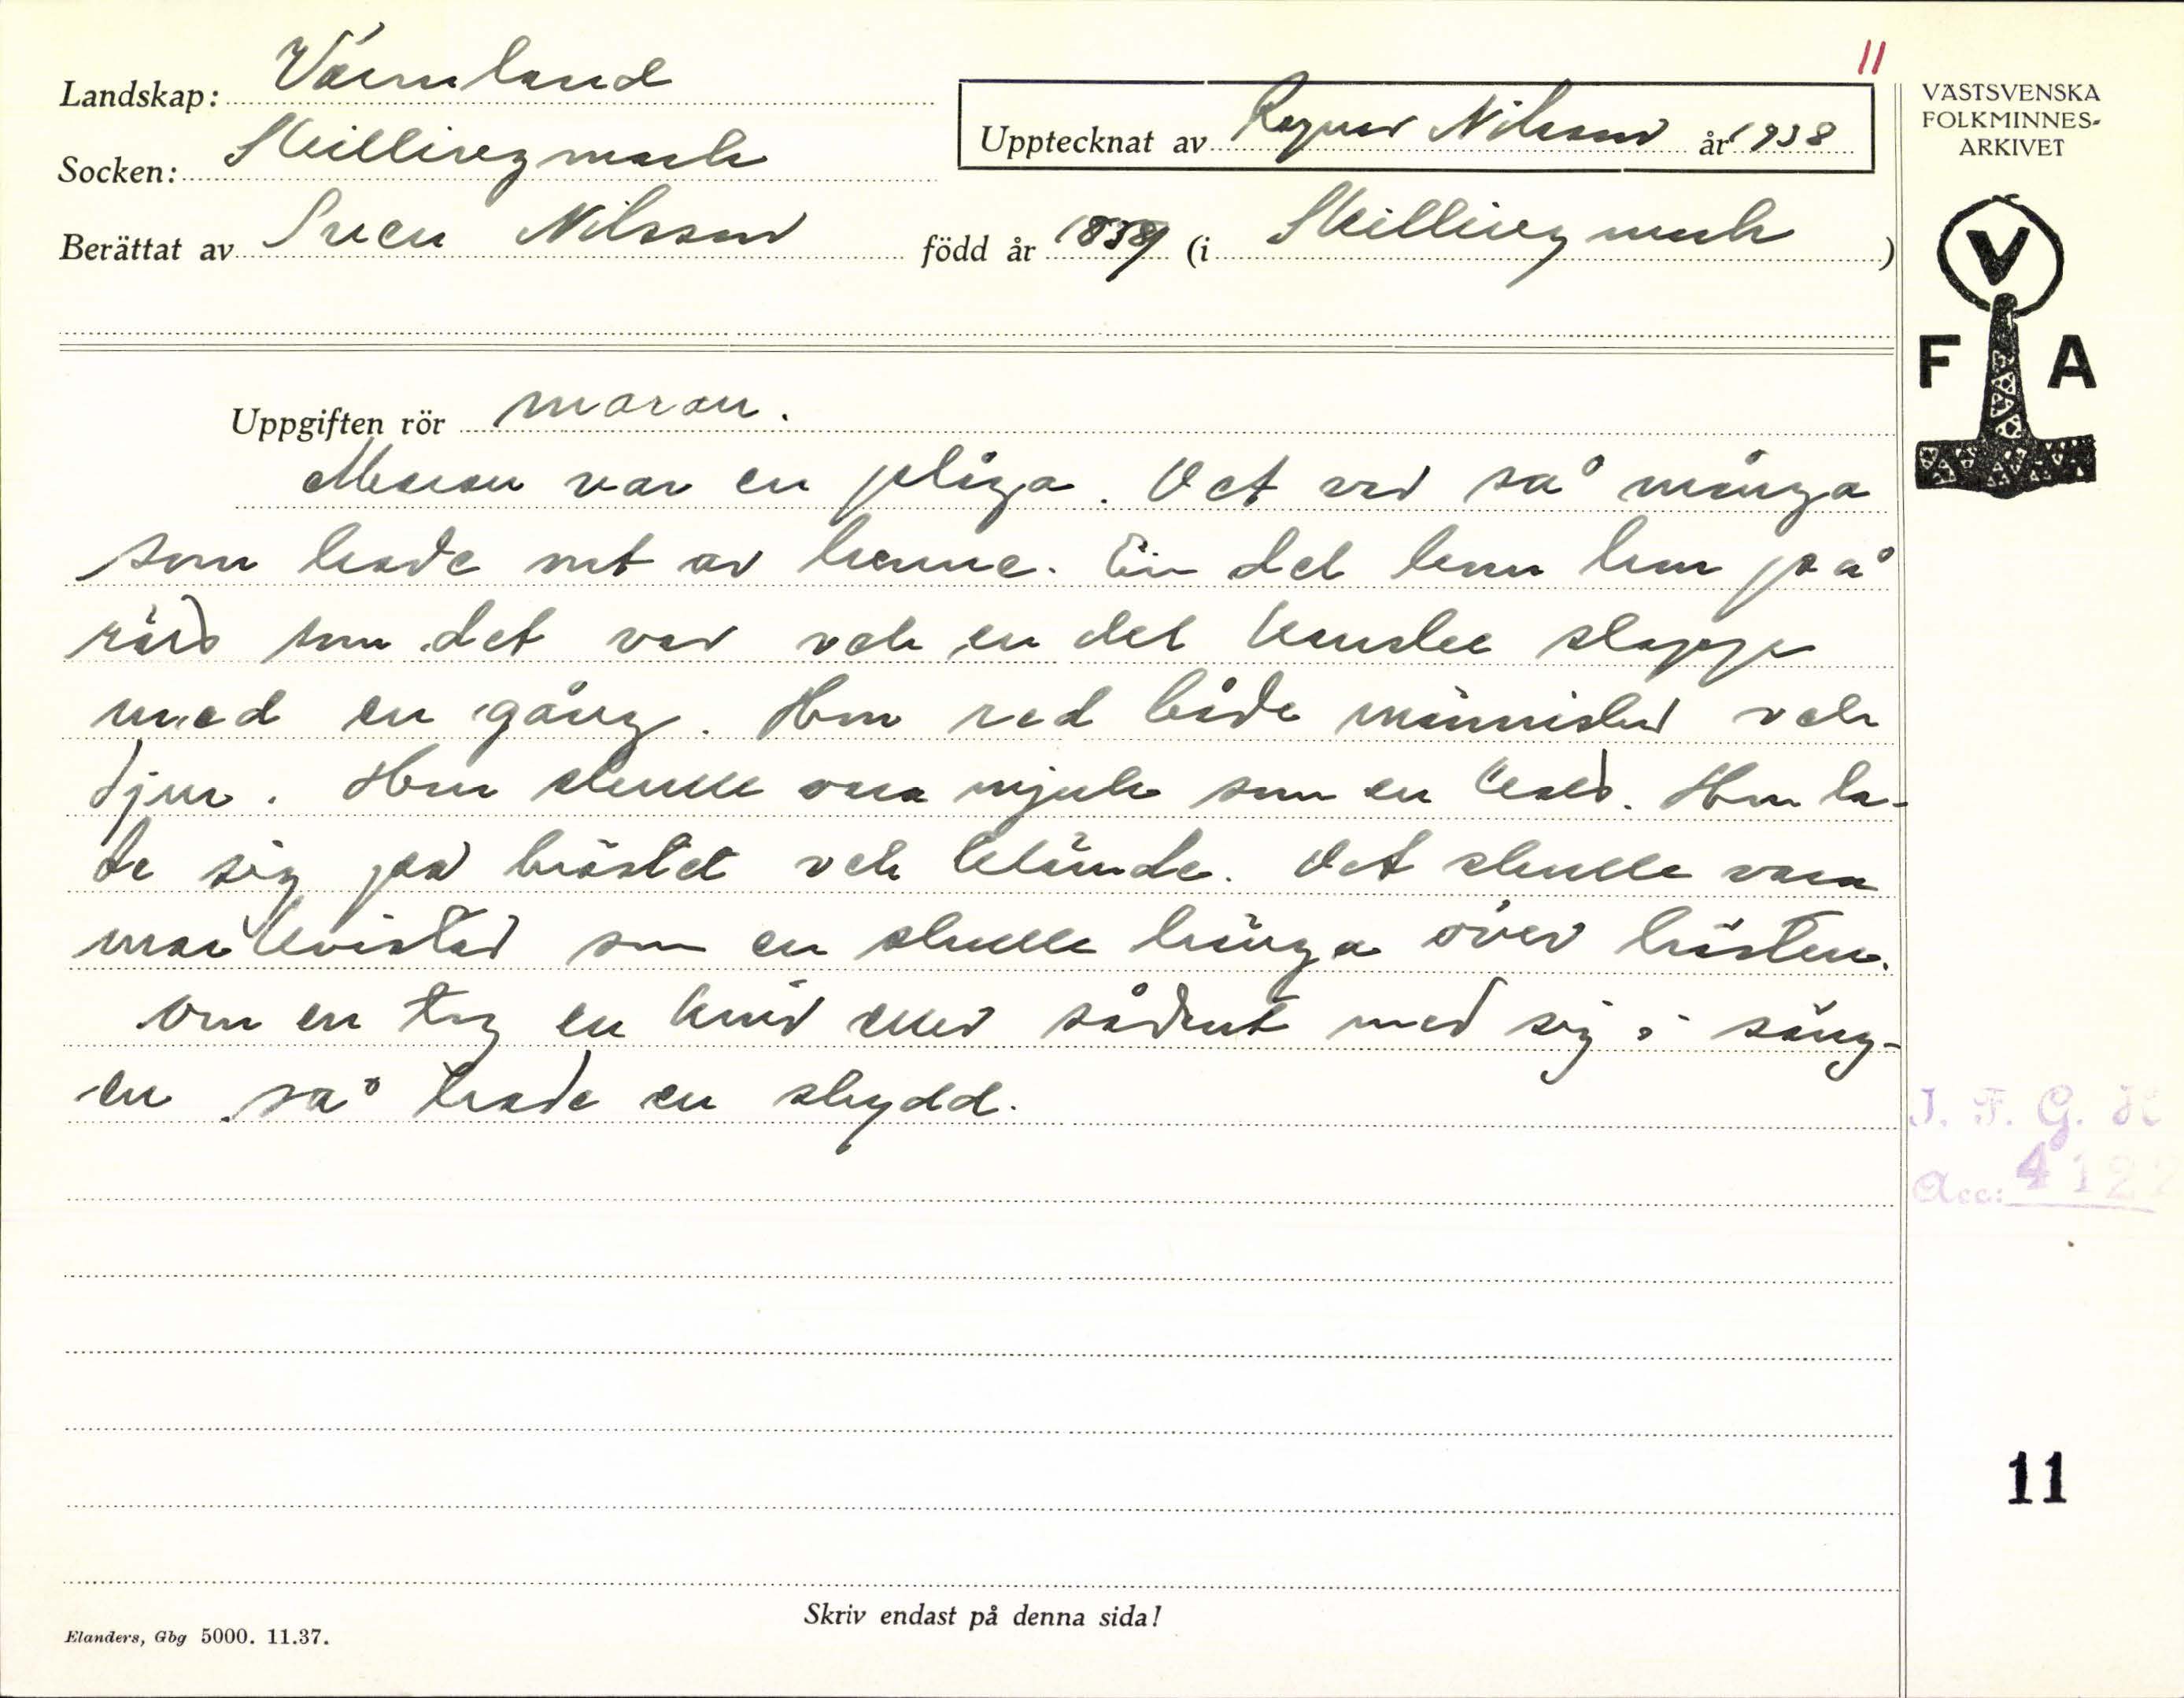 11
Landskap: Värmland
Socken: Skillingmark
Upptecknat av Ragnar Nilsson år 1938
Berättat av Sven Nilsson född år (i Skillingmark)
VÄSTSVENSKA
FOLKMINNES-
ARKIVET
V
F A
Uppgiften rör maran.
Maran var en plåga. Det var så många
som hade ont av henne. En del kom hon på
rätt som det var och en del kanske slapp
med en gång. Hon red både människor och
djur. Hon skulle vara mjuk som en katt. Hon la-
de sig på bröstet och klämde. Det skulle vara
markvistar som en skulle hänga över hästen.
Om en tog en kniv eller sådant med sig i säng-
en så hade en skydd.
I. F. G. H
Acc: 4122
11
Skriv endast på denna sida!
Elanders, Gbg 5000. 11.37.